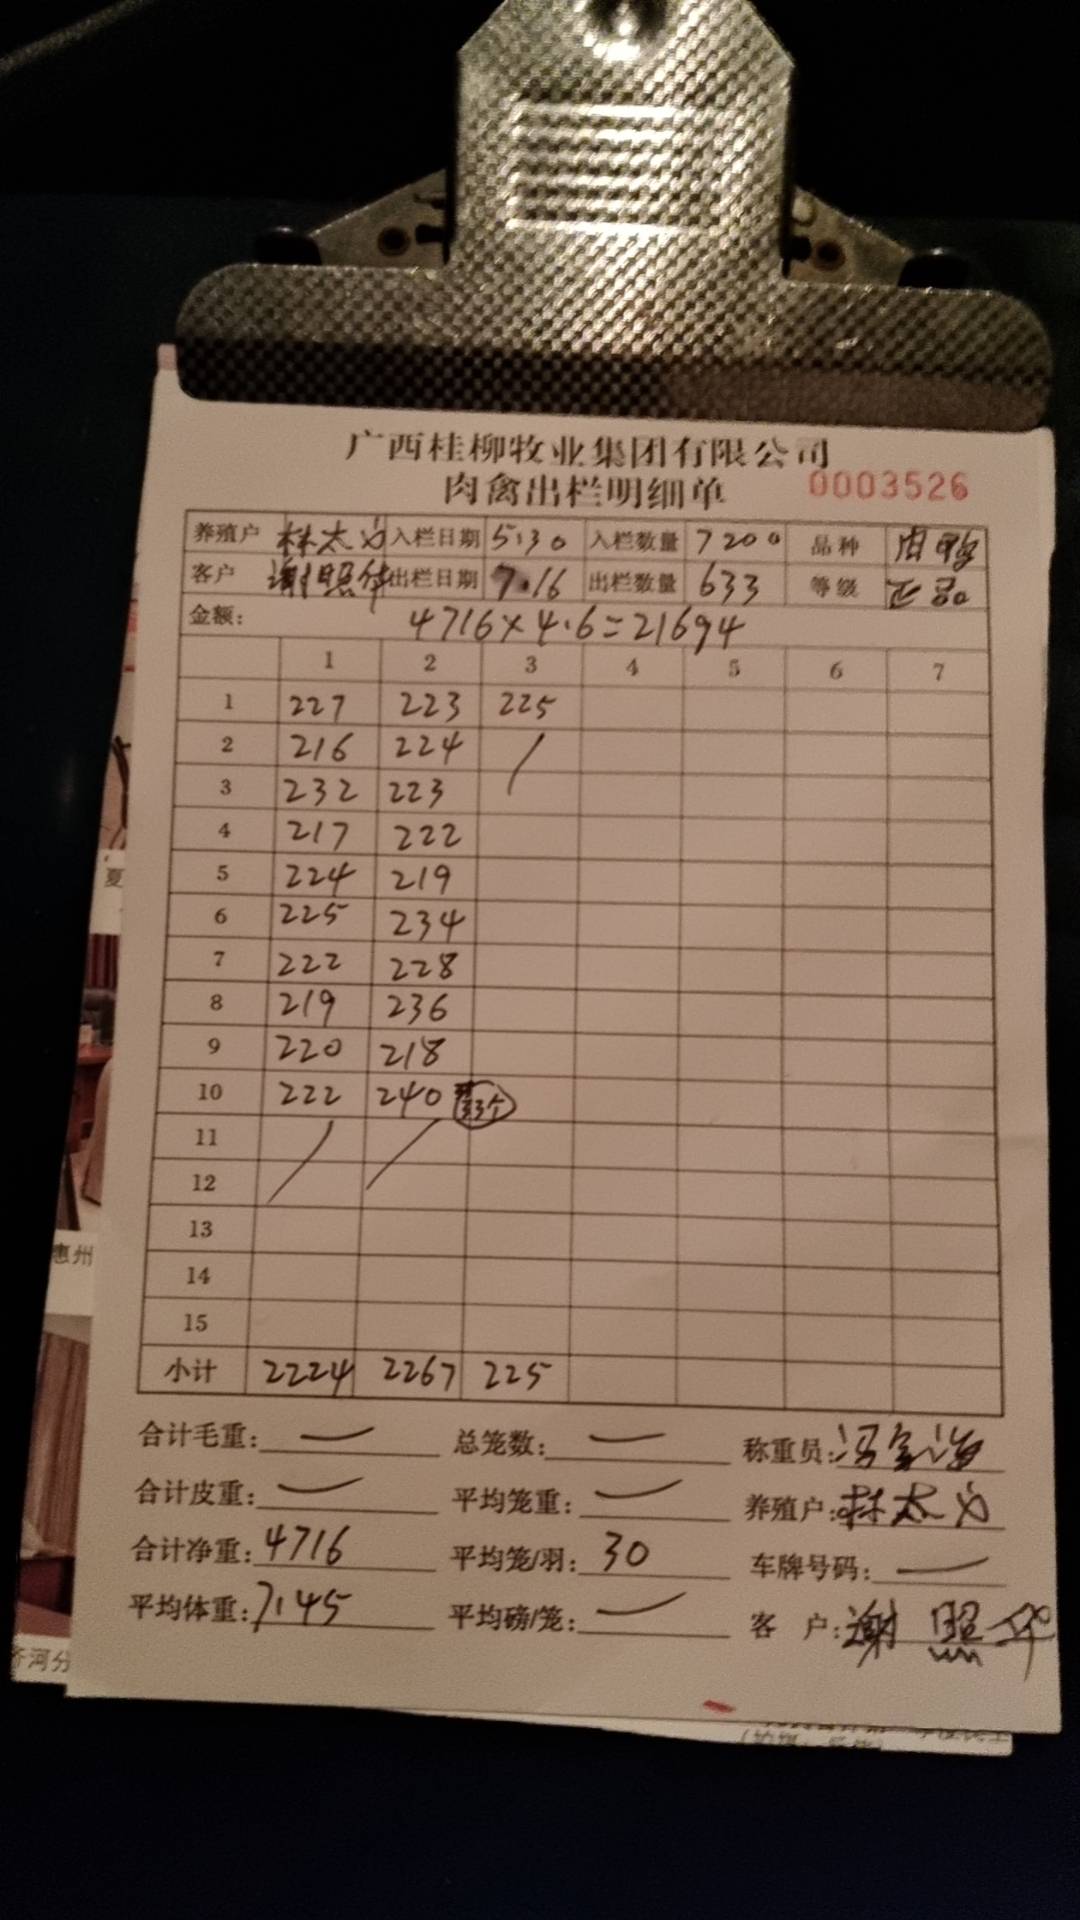 广西桂柳牧业集团有限公司
肉禽出栏明细单 0003526
养殖户 林太 入栏日期 5.30 入栏数量 7200 品种 肉鸭
客户 谢照华 出栏日期 7.16 出栏数量 633 等级 正品
金额: 4716×4.6=21694
1 2 3 4 5 6 7
1 227 223 225
2 216 224
3 232 223
4 217 222
5 224 219
6 225 234
7 222 228
8 219 236
9 220 218
10 222 240 33个
11
12
13
14
15
小计 2224 2267 225
合计毛重: 总笼数: 称重员:
合计皮重: 平均笼重: 养殖户: 林太
合计净重: 4716 平均笼/羽: 30 车牌号码:
平均体重: 7.45 平均磅/笼: 客 户: 谢照华
夏
惠州
齐河分